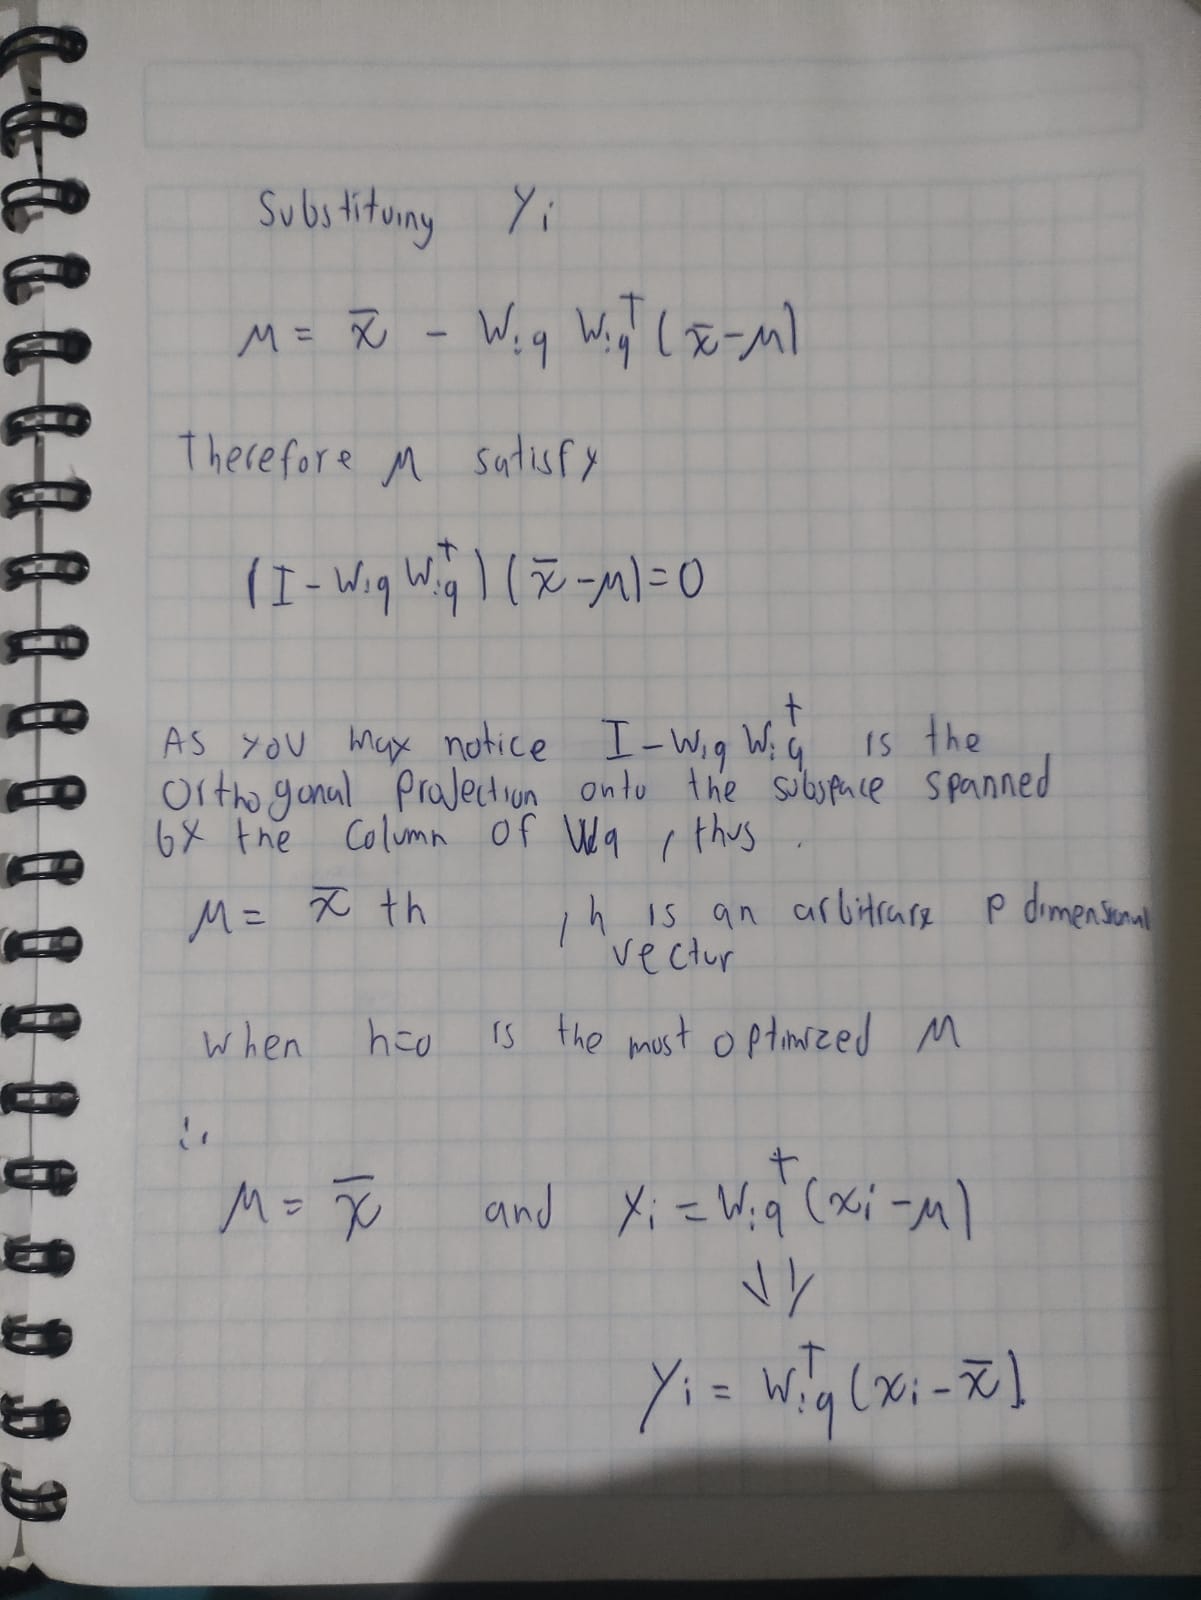 Substituiny Yi
μ = x̄ - W:q W:qᵀ (x̄-μ)
Therefore μ satisfy
(I - W:q W:qᵀ) (x̄-μ)=0
As you may notice I - W:q W:qᵀ is the
Orthogonal Projection onto the subspace spanned
by the Column of W:q, thus.
μ = x̄ + h , h is an arbitrary p dimensional
vector
when h=0 is the most optimized μ
∴
μ = x̄ and yi = W:qᵀ (xi-μ)
⇓
yi = W:qᵀ (xi-x̄).